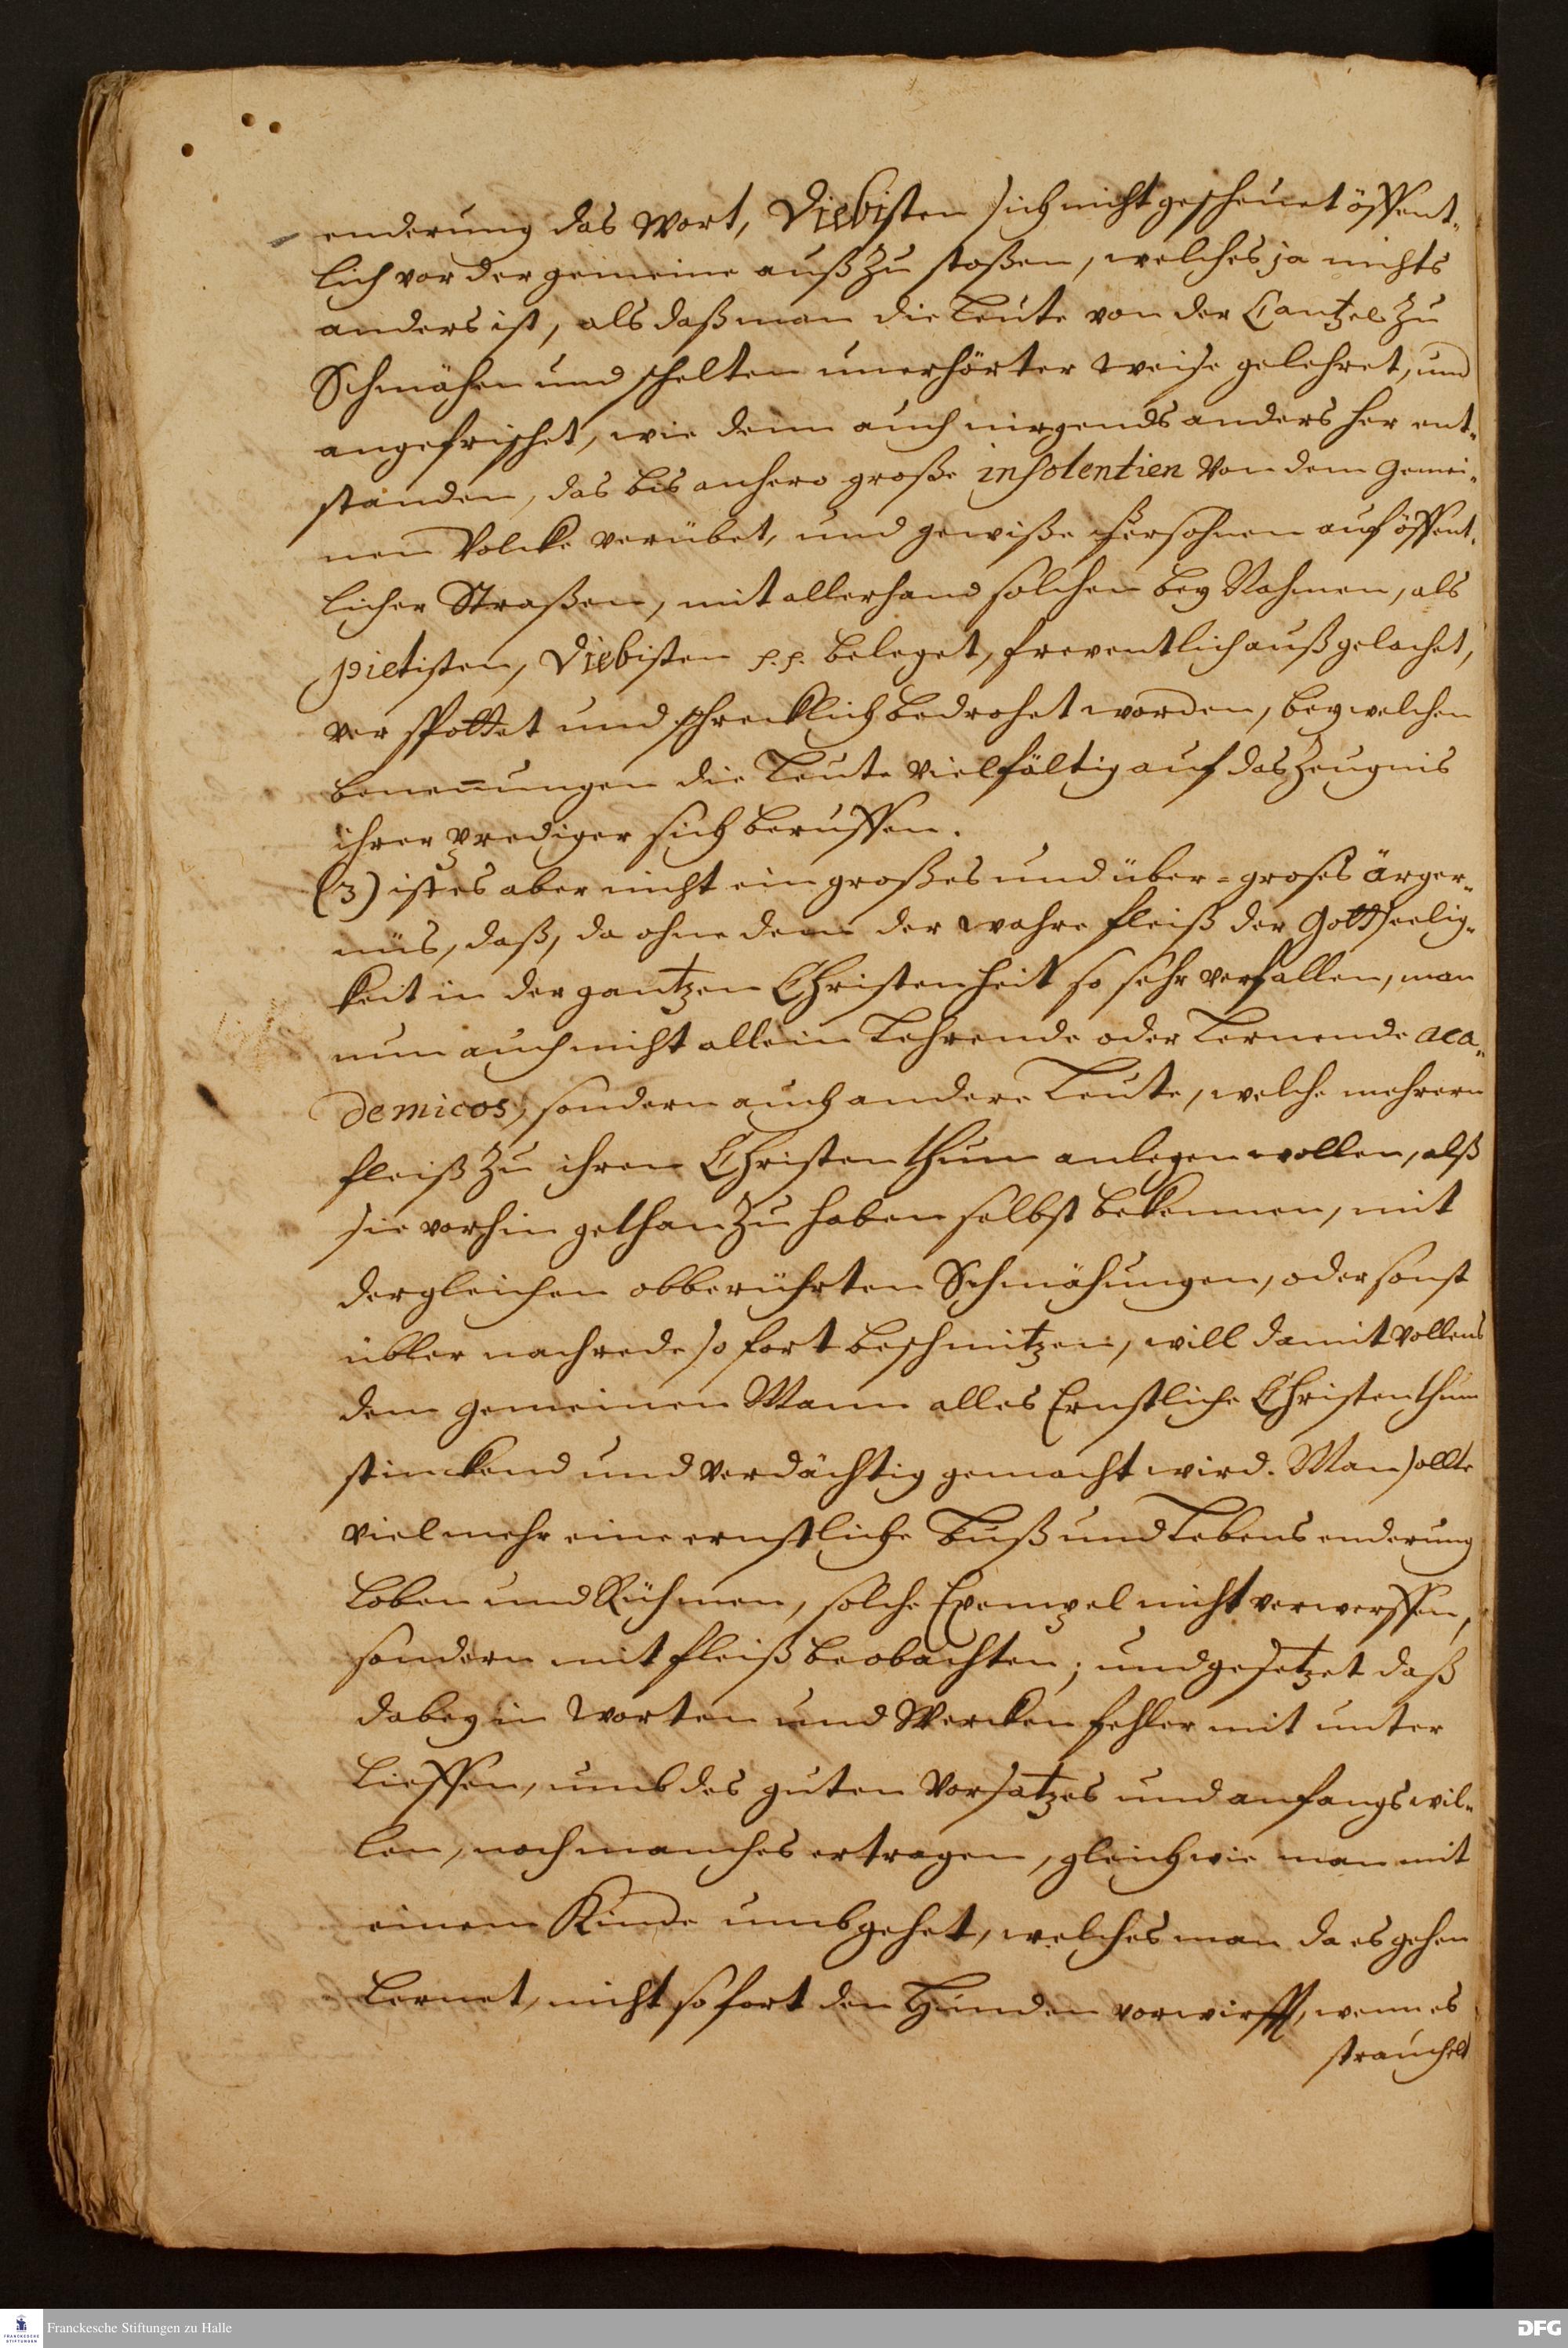 enderung das Wort, Diebisten sich nicht gescheuet öffent-
lich vor der gemeine auß zu stoßen, welches ja nichts
anders ist, als daß man die Leute von der Cantzel zu
Schmähen und schelten unerhörter weise gelehret, und
angefrischet, wie denn auch nirgends anders her ent-
standen, das bis anhero große insolentien von dem gemei-
nen Volcke verübet, und gewiße Persohnen auf öffent-
licher Straßen, mit allerhand solchen bey Nahmen, als
pietisten, Diebisten p. p. beleget, freventlich außgelachet,
verspottet und schrecklich bedrohet worden, bey welchen
benennungen die Leute vielfältig auf das Zeugnis
ihrer prediger sich beruffen.
(3) ist es aber nicht ein großes und über-großes ärger-
nüs, daß, da ohne dem der wahre fleiß der Gottseelig-
keit in der gantzen Christenheit so sehr verfallen, man
nun auch nicht allein Lehrende oder Lernende aca-
demicos, sondern auch andere Leute, welche mehrern
fleiß zu ihren Christenthum anlegen wollen, alß
sie vorhin gethan zu haben selbst bekennen, mit
dergleichen obberührten Schmähungen, oder sonst
übler nachrede so fort beschmitzen, will damit vollens
dem gemeinen Mann alles Ernstliche Christenthum
stinckend und verdächtig gemacht wird. Man sollte
vielmehr eine ernstliche Buß und Lebens enderung
Loben und Rühmen, solche Exempel nicht verwerffen,
sondern mit fleiß beobachten; und gesetzet daß
dabey in Worten und Wercken fehler mit unter
Lieffen, umb des guten Vorsatzes und anfangs wil-
len, noch manches ertragen, gleich wie man mit
einem Kinde umbgehet, welches man da es gehen
Lernet, nicht so fort den Hunden vorwirfft, wenn es
strauchelt
Franckesche Stiftungen zu Halle
DFG